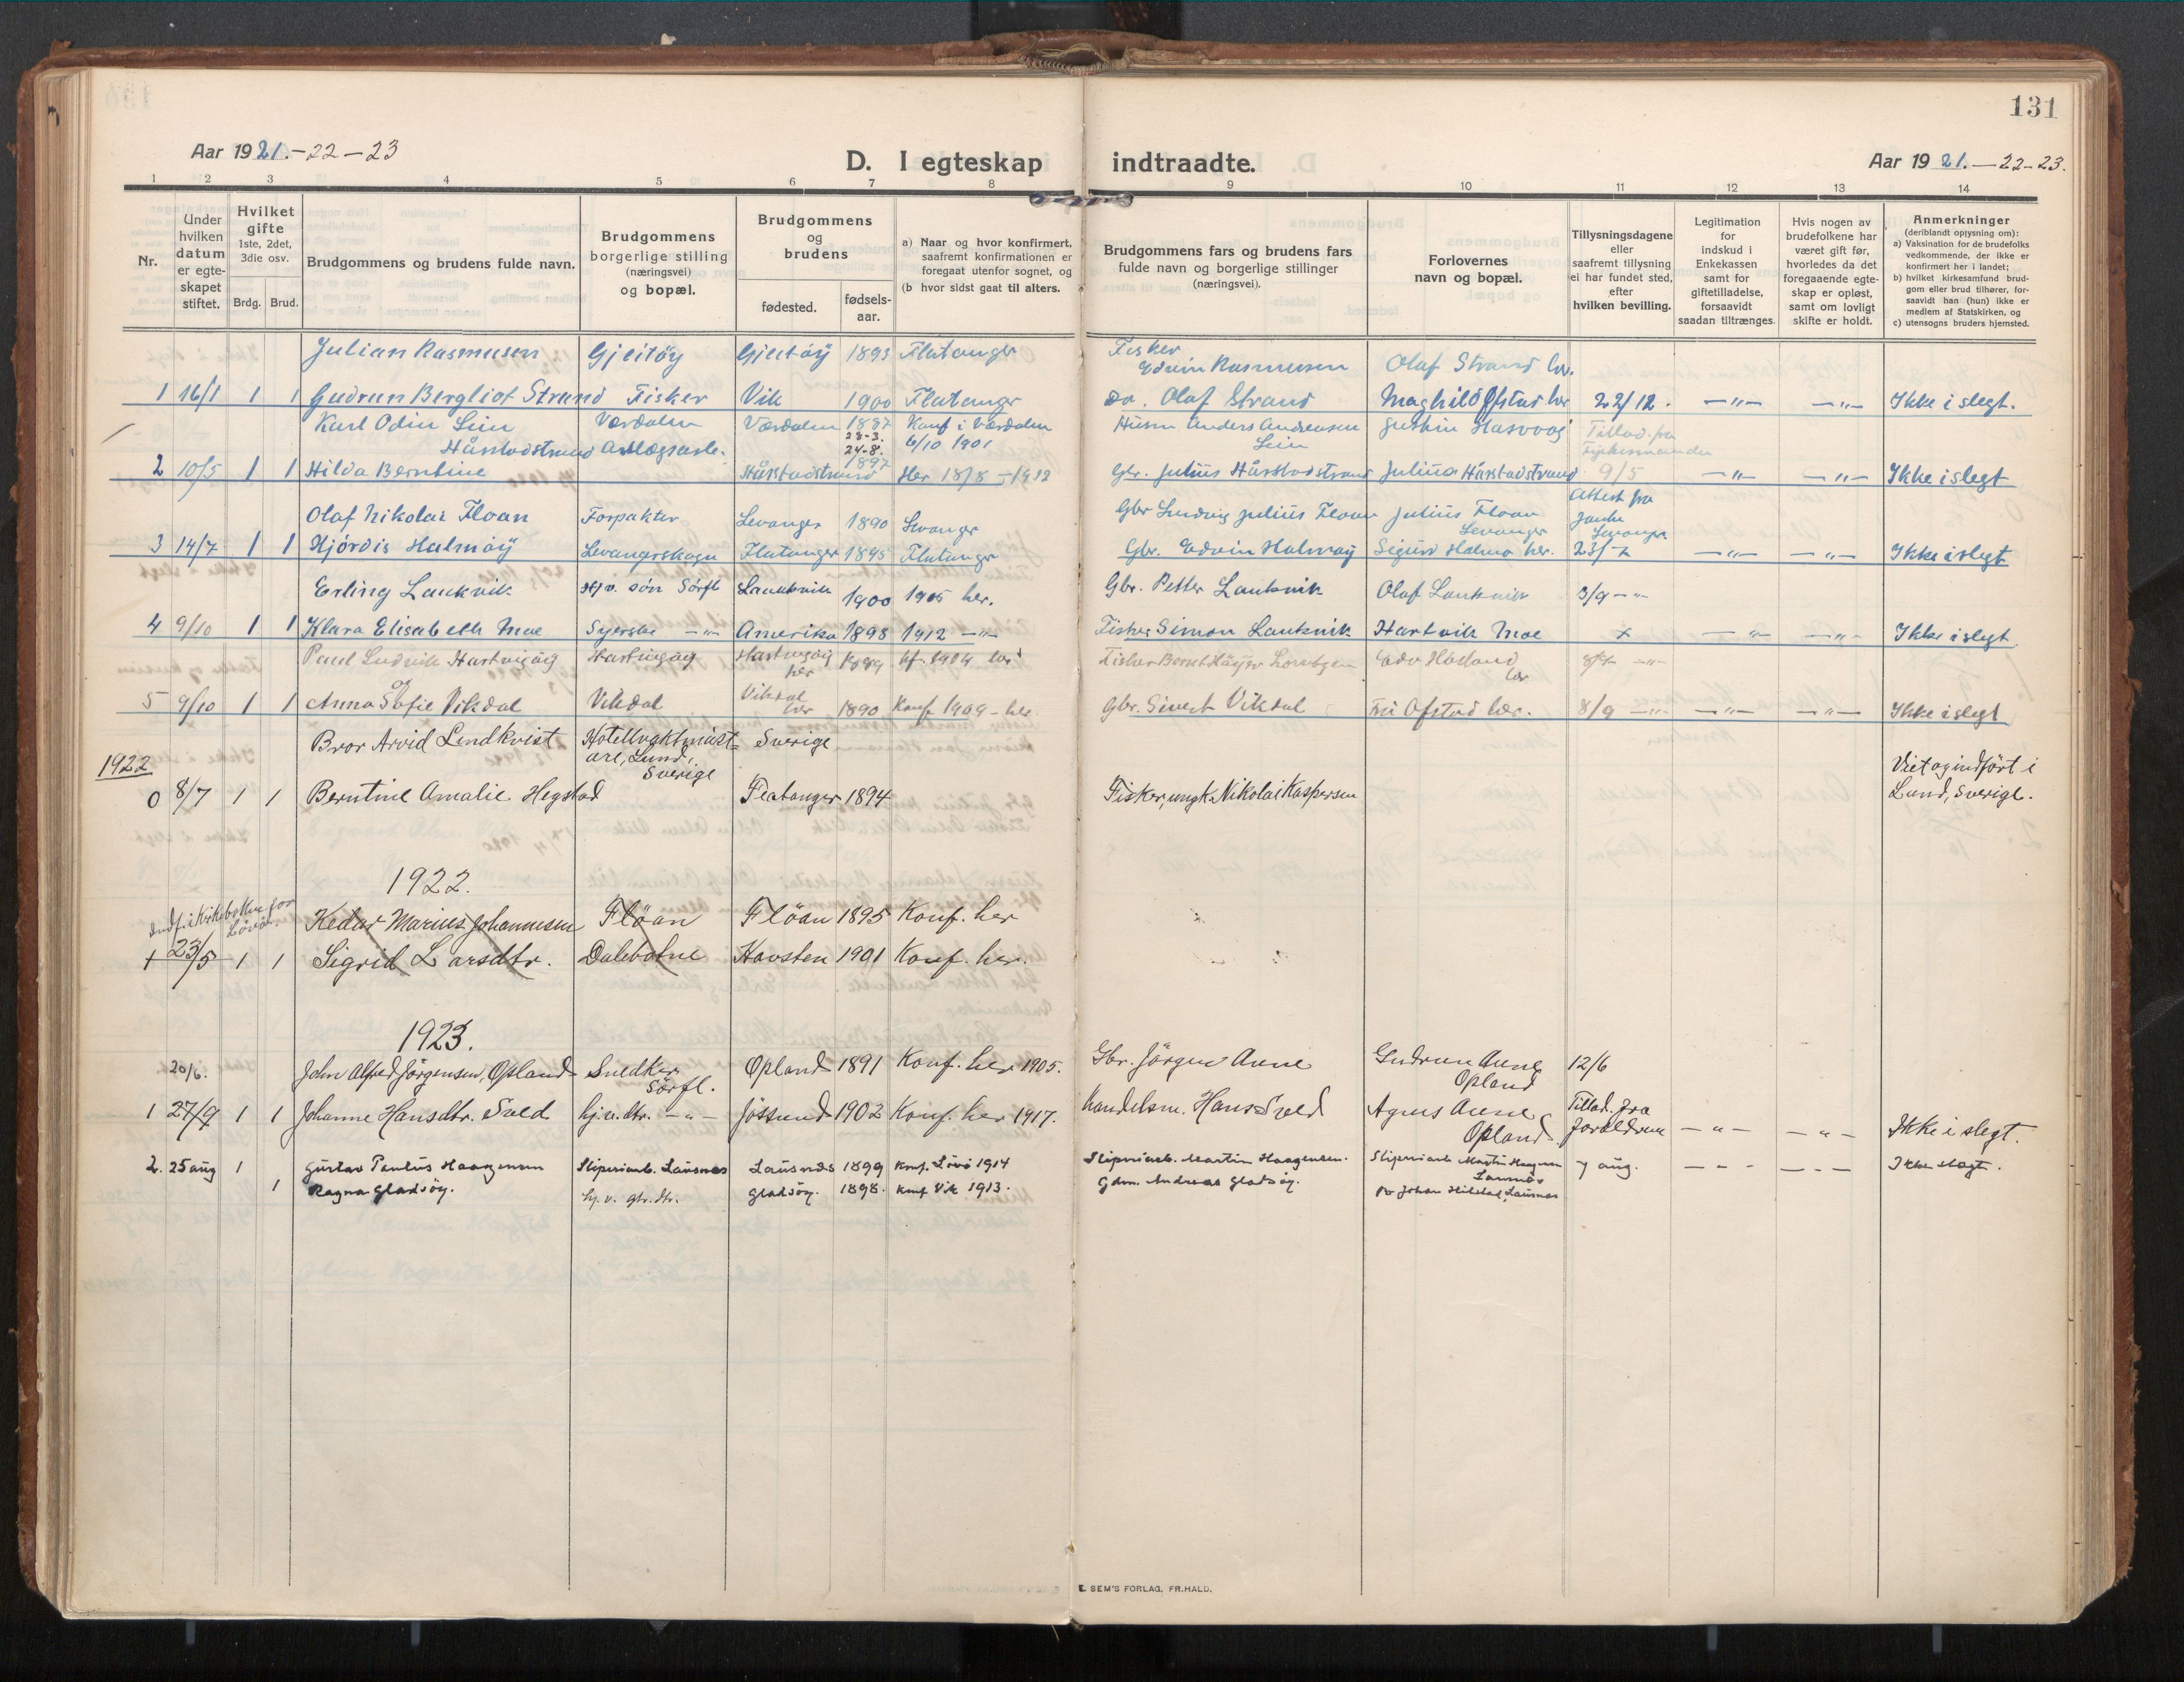 131
Aar 1921.-22-23
D. I egteskap indtraadte.
Aar 1921.-22-23.
1 2 3 4 5 6 7 8 9 10 11 12 13 14
Nr.
Under hvilken datum er egte-skapet stiftet.
Hvilket gifte 1ste, 2det, 3die osv.
Brdg. Brud.
Brudgommens og brudens fulde navn.
Brudgommens borgerlige stilling (næringsvei) og bopæl.
Brudgommens og brudens
fødested. fødsels-aar.
a) Naar og hvor konfirmert, saafremt konfirmationen er foregaat utenfor sognet, og
(b hvor sidst gaat til alters.
Brudgommens fars og brudens fars fulde navn og borgerlige stillinger (næringsvei).
Forlovernes navn og bopæl.
Tillysningsdagene eller saafremt tillysning ei har fundet sted, efter hvilken bevilling.
Legitimation for indskud i Enkekassen samt for giftetilladelse, forsaavidt saadan tiltrænges.
Hvis nogen av brudefolkene har været gift før, hvorledes da det foregaaende egte-skap er opløst, samt om lovligt skifte er holdt.
Anmerkninger (deriblandt oplysning om):
a) Vaksination for de brudefolks vedkommende, der ikke er konfirmert her i landet;
b) hvilket kirkesamfund brud-gom eller brud tilhører, for-saavidt han (hun) ikke er medlem af Statskirken, og
c) utensogns bruders hjemsted.
Julian Rasmusen Gjeitöy Gjeitöy 1893 Flatanger Fisker Edvin Rasmusen Olaf Strand her.
1 16/1 1 1 Gudrun Bergliot Strand Fisker Vik 1900 Flatanger Do. Olaf Strand Maghild Ofstad her 22/12. -"- -"- Ikke i slegt.
Karl Odin Lein Værdalen Værdalen 1887 28-3. Konf i Værdalen 6/10 1901 Husm Anders Andreasen Lein Tillad. fra
2 10/5 1 1 Hilda Berntine Hårstadstrand 24-8. 1897 Hårstadstrand Her 18/8-1912 Gbr. Julius Hårstadstrand Julius Hårstadstrand 9/5 -"- -"- Ikke i slegt
Olaf Nikolai Floan Forpakter Levanger 1890 Levanger Gbr Ludvig Julius Floan Julius Floan Levanger Attest fra Levanger
3 14/7 1 1 Hjördis Halmöy Levangerskogn Flatanger 1895 Flatanger Gbr. Edvin Halmöy Sigurd Halmö her. 23/7 -"- -"- Ikke i slegt
Erling Laukvik Hjv. sön Sörfl Laukvik 1900 1915 her. Gbr. Petter Laukvik Olaf Laukvik 3/9 -"-
4 9/10 1 1 Klara Elisabeth Moe Syerske -"- Amerika 1898 1912 -"- Fisker Simon Laukvik Hartvik Moe x -"- -"- Ikke i slegt
Paul Ludvik Hartvigöy Hartvigöy Hartvigöy her 1889 kf. 1904 her Edv Hasland her
5 9/10 1 1 Anna Sofie Vikdal Vikdal Vikdal her 1890 Konf 1909 - her. Gbr. Sivert Vikdal Ofstad her. 8/9 -"- -"- -"- Ikke i slegt
Bror Arvid Lendkvist Hotellvaktmästare, Lund, Sverige Sverige
1922
0 8/7 1 1 Berntine Amalie Hegstad Flatanger 1894 Fisker, ungk. Nikolai Kaspersen Viet og indfört i Lund, Sverige.
1922.
Indf. i Kirkeboken for Lövö.
Kedar Marius Johannesen Flöan Flöan 1895 Konf. her
1 23/5 1 1 Sigrid Larsdtr. Dalebotne Hovsten 1901 Konf. her.
1923.
20/6. John Alfred Jörgensen, Opland Snedker Sörfl. Opland 1891 Konf. her 1905. Gbr. Jörgen Aune Gudrun Aune Opland 12/6
1 27/9 1 1 Johanne Hansdtr. Sved hj.v. dtr. -"- Jössund 1902 Konf. her 1917. Handelsm. Hans Sved Agnes Aune Opland. Tillad. fra foreldrene -"- -"- Ikke i slegt.
2. 25 aug 1 Gustav Paulus Haagensen Sliperiarb. Lausnes Lausnes 1899 Konf. Lövö 1914 Sliperiarb. Martin Haagensen. Sliperiarb Martin Haagensen Lausnes 7 aug. -"- -"- Ikke slegt.
1 Ragna Gladsöy. hj. v. gbr. dtr. Gladsöy. 1898. Konf Vik 1913. Gdm. Andreas Gladsöy. Johan Hilstad, Lausnes
E. SEM'S FORLAG, FR.HALD.